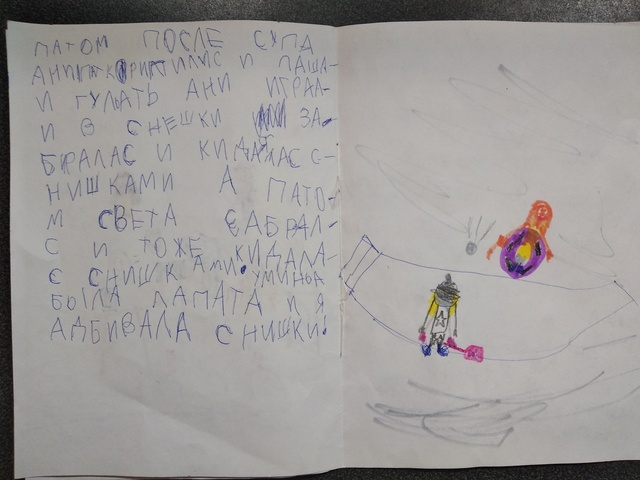 ПАТОМ ПОСЛЕ СУПА
И ПАША-
И ГУЛАТЬ АНИ ИГРАЛ-
И В СНЕШКИ ЗА-
БИРАЛАС И КИДАЛАС С-
НИШКАМИ А ПАТО-
М СВЕТА САБРАЛ-
С И ТОЖЕ КИДАЛА-
С СНИШКАМИ. УМИНЬА
БЫЛА ЛАПАТА И Я
АДБИВАЛА СНИШКИ!